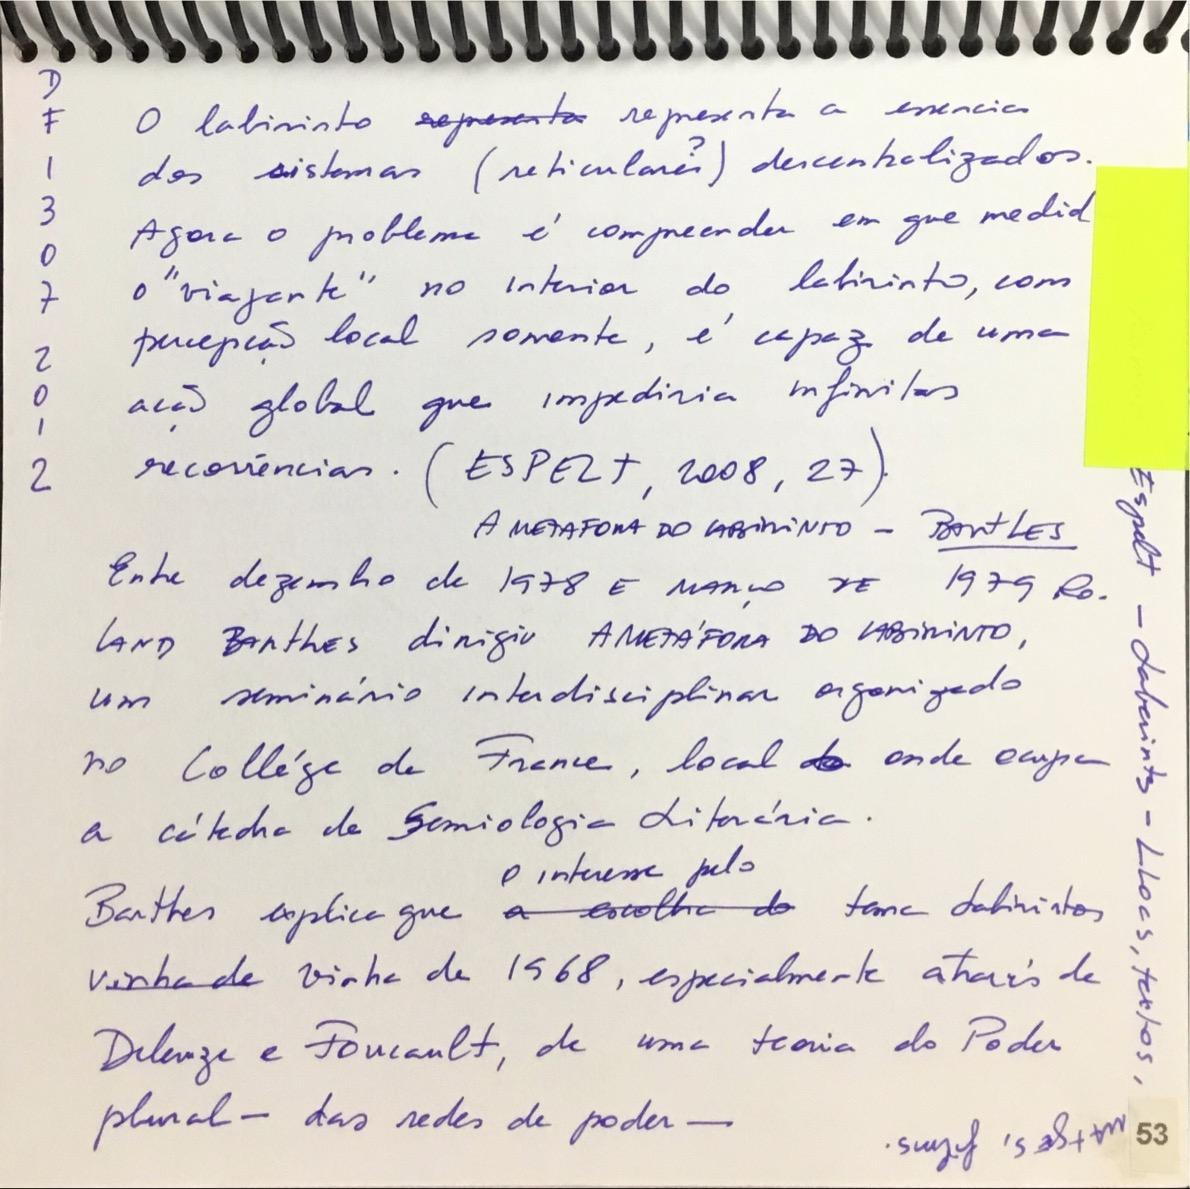 D
F
1
3
0
7
2
0
1
2
O labirinto representa representa a essencia
dos sistemas (reticulares?) descentralizados.
Agora o problema é compreender em que medid
o "viajante" no interior do labirinto, com
percepção local somente, é capaz de uma
ação global que impediria infinitas
recorrências. (ESPELT, 2008, 27).
A METAFORA DO LABIRINTO - BARTHES
Entre dezembro de 1978 E MARÇO DE 1979 Ro-
LAND BARTHES dirigiu A METÁFORA DO LABIRINTO,
um seminário interdisciplinar organizado
no Collége de France, local do onde ocupa
a cátedra de Semiologia Literária.
o interesse pelo
Barthes explica que a escolha do tema labirintos
vinha de vinha de 1968, especialmente através de
Deleuze e Foucault, de uma teoria do Poder
plural - das redes de poder -
Espelt - Laberints - Llocs, textos,
imatges i films.
53